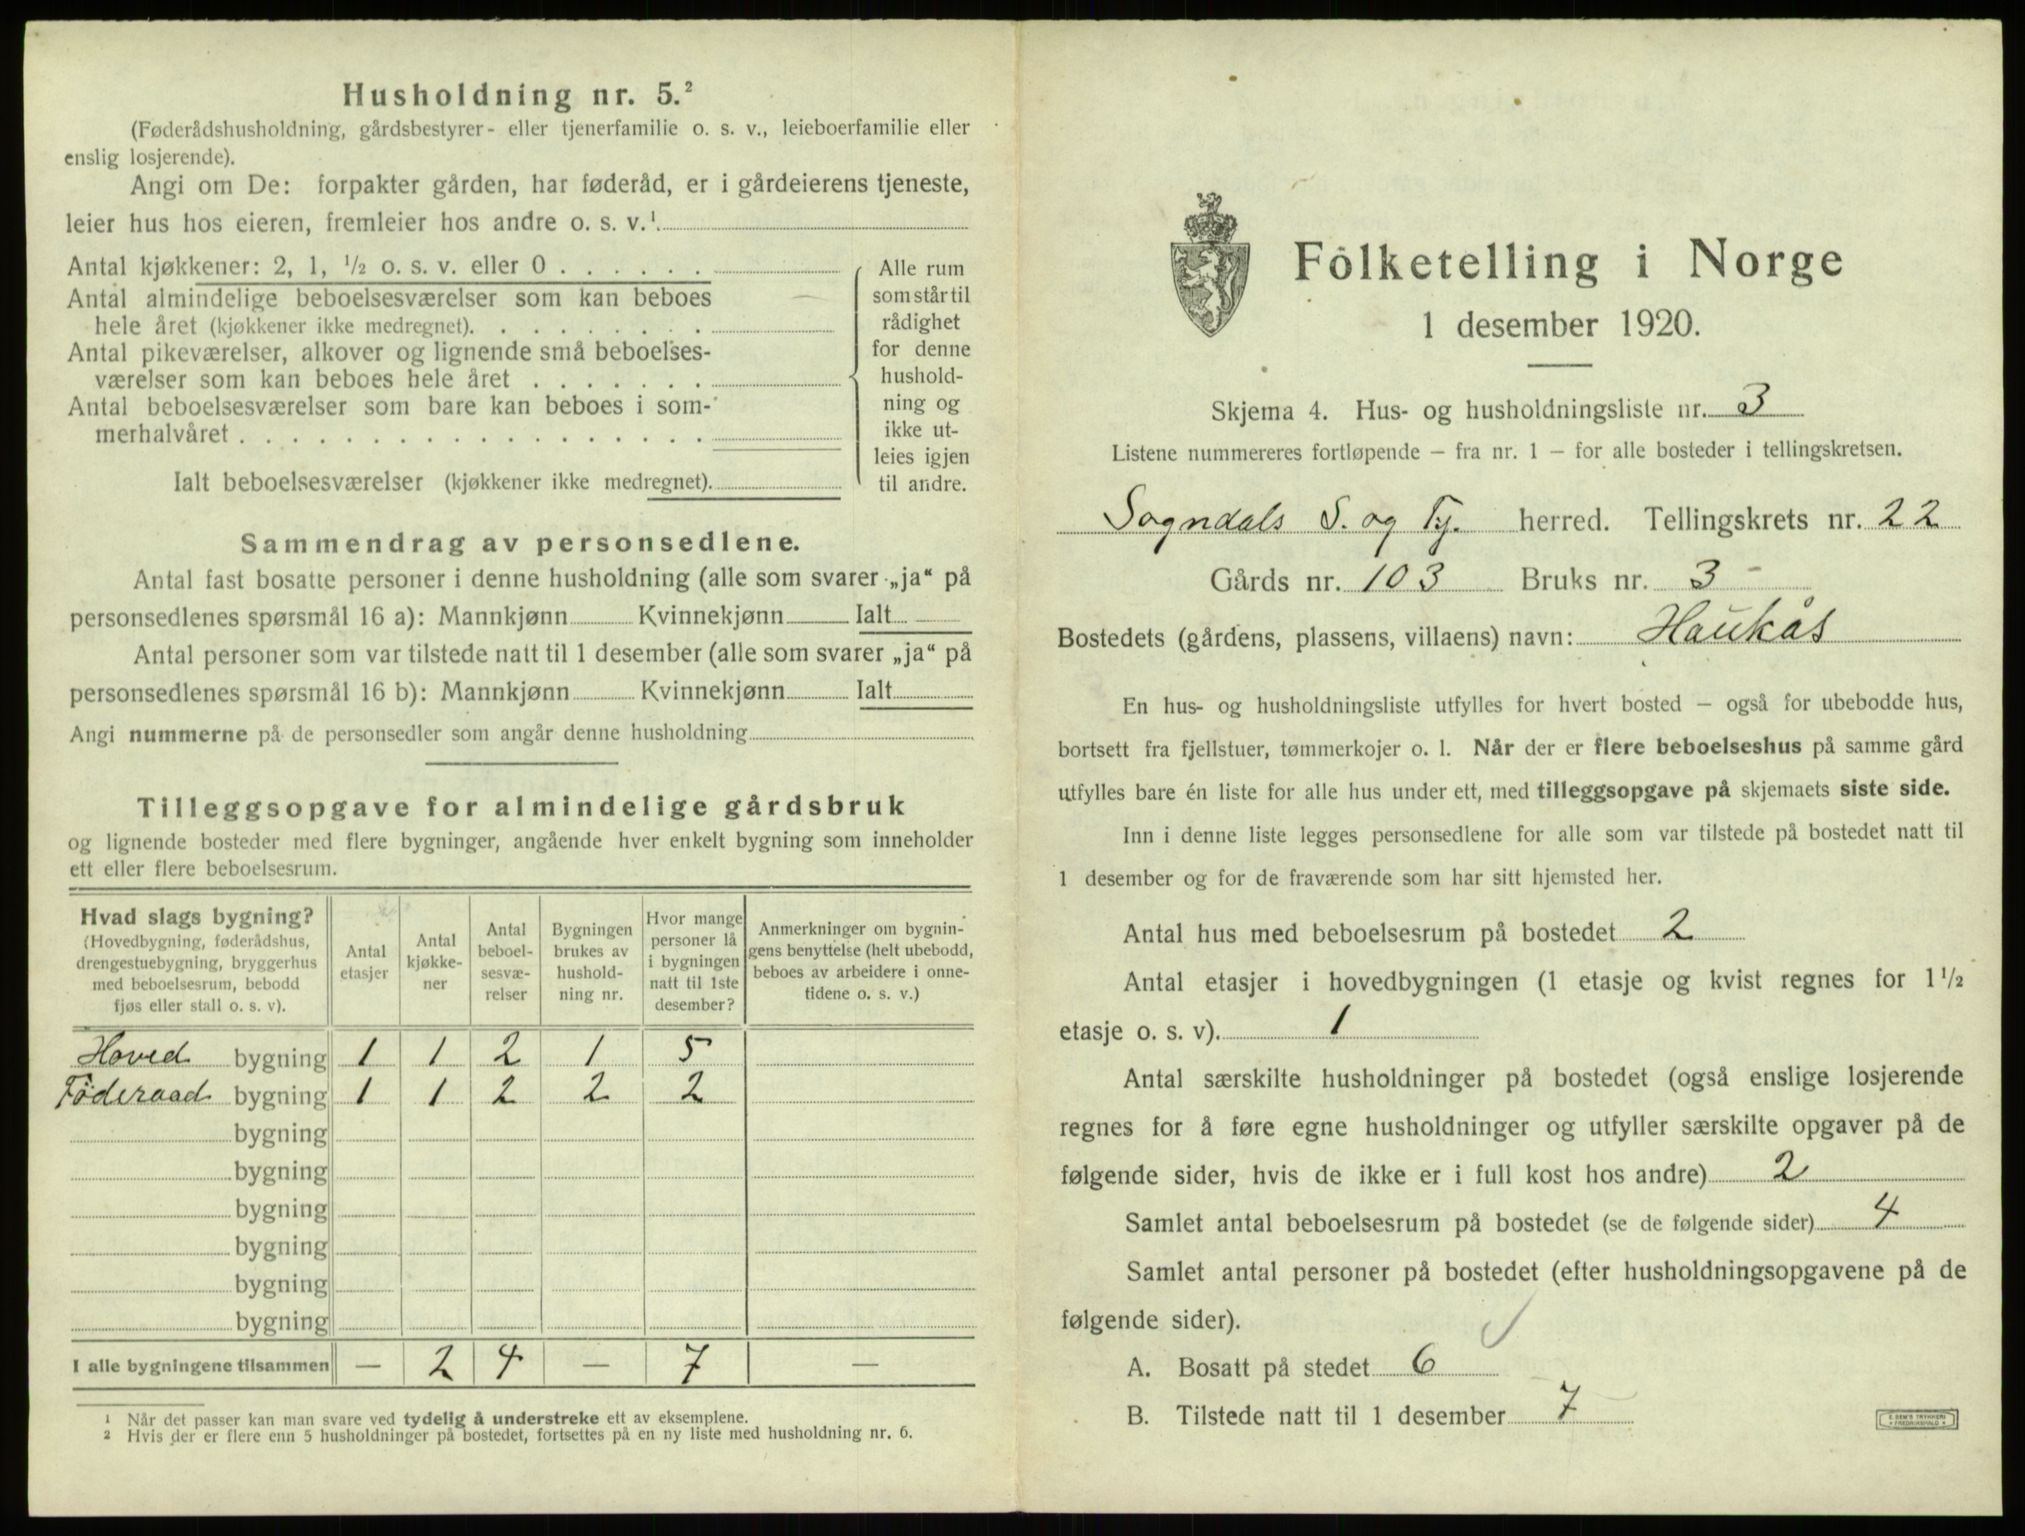 Husholdning nr. 5.²
(Føderådshusholdning, gårdsbestyrer- eller tjenerfamilie o. s. v., leieboerfamilie eller
enslig losjerende).
Angi om De: forpakter gården, har føderåd, er i gårdeierens tjeneste,
leier hus hos eieren, fremleier hos andre o. s. v.¹
Antal kjøkkener: 2, 1, ½ o. s. v. eller 0 . . . . . .
Antal almindelige beboelsesværelser som kan beboes
hele året (kjøkkener ikke medregnet). . . . . . . . .
Antal pikeværelser, alkover og lignende små beboelses-
værelser som kan beboes hele året . . . . . . .
Antal beboelsesværelser som bare kan beboes i som-
merhalvåret . . . . . . . . . . . . . . . . . .
Ialt beboelsesværelser (kjøkkener ikke medregnet).
Alle rum
som står til
rådighet
for denne
hushold-
ning og
ikke ut-
leies igjen
til andre.
Sammendrag av personsedlene.
Antal fast bosatte personer i denne husholdning (alle som svarer „ja“ på
personsedlenes spørsmål 16 a): Mannkjønn Kvinnekjønn Ialt
Antal personer som var tilstede natt til 1 desember (alle som svarer „ja“ på
personsedlenes spørsmål 16 b): Mannkjønn Kvinnekjønn Ialt
Angi nummerne på de personsedler som angår denne husholdning
Tilleggsopgave for almindelige gårdsbruk
og lignende bosteder med flere bygninger, angående hver enkelt bygning som inneholder
ett eller flere beboelsesrum.
Hvad slags bygning?
(Hovedbygning, føderådshus,
drengestuebygning, bryggerhus
med beboelsesrum, bebodd
fjøs eller stall o. s. v).
Antal
etasjer
Antal
kjøkke-
ner
Antal
beboel-
sesvæ-
relser
Bygningen
brukes av
hushold-
ning nr.
Hvor mange
personer lå
i bygningen
natt til 1ste
desember?
Anmerkninger om bygnin-
gens benyttelse (helt ubebodd,
beboes av arbeidere i onne-
tidene o. s. v.)
Hoved bygning 1 1 2 1 5
Föderaad bygning 1 1 2 2 2
bygning
bygning
bygning
bygning
bygning
bygning
I alle bygningene tilsammen — 2 4 — 7 —
¹ Når det passer kan man svare ved tydelig å understreke ett av eksemplene.
² Hvis der er flere enn 5 husholdninger på bostedet, fortsettes på en ny liste med husholdning nr. 6.
Folketelling i Norge
1 desember 1920.
Skjema 4. Hus- og husholdningsliste nr. 3
Listene nummereres fortløpende – fra nr. 1 – for alle bosteder i tellingskretsen.
Sogndals S. og Fj. herred. Tellingskrets nr. 22
Gårds nr. 103 Bruks nr. 3
Bostedets (gårdens, plassens, villaens) navn: Haukås
En hus- og husholdningsliste utfylles for hvert bosted – også for ubebodde hus,
bortsett fra fjellstuer, tømmerkojer o. l. Når der er flere beboelseshus på samme gård
utfylles bare én liste for alle hus under ett, med tilleggsopgave på skjemaets siste side.
Inn i denne liste legges personsedlene for alle som var tilstede på bostedet natt til
1 desember og for de fraværende som har sitt hjemsted her.
Antal hus med beboelsesrum på bostedet 2
Antal etasjer i hovedbygningen (1 etasje og kvist regnes for 1 ½
etasje o. s. v). 1
Antal særskilte husholdninger på bostedet (også enslige losjerende
regnes for å føre egne husholdninger og utfyller særskilte opgaver på de
følgende sider, hvis de ikke er i full kost hos andre) 2
Samlet antal beboelsesrum på bostedet (se de følgende sider) 4
Samlet antal personer på bostedet (efter husholdningsopgavene på de
følgende sider).
A. Bosatt på stedet 6
B. Tilstede natt til 1 desember 7